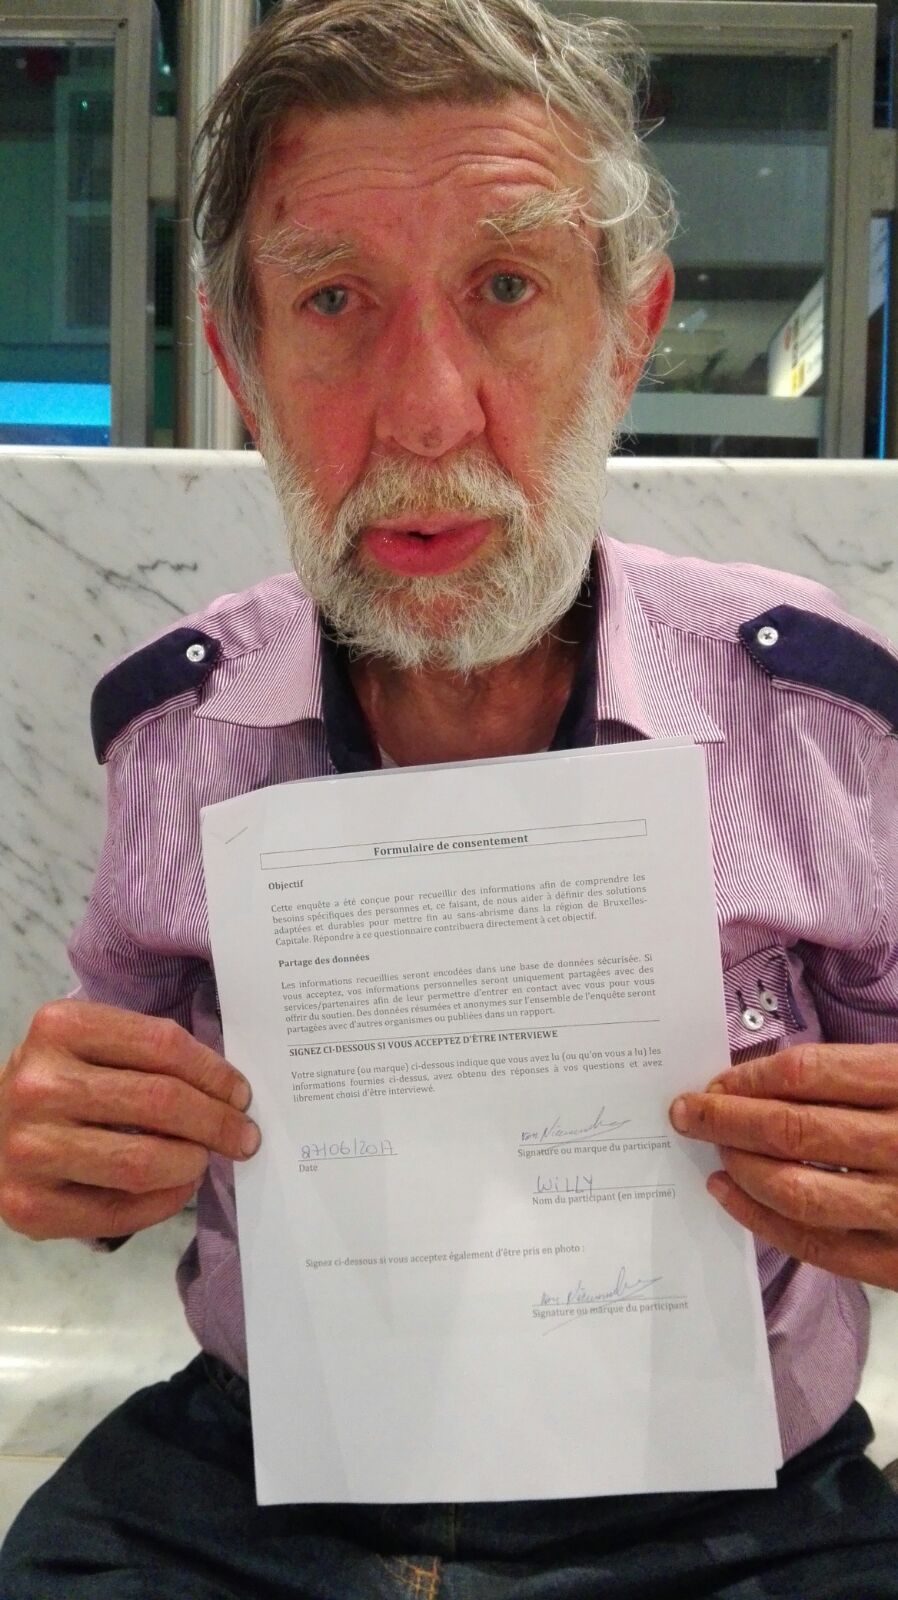 Formulaire de consentement
Objectif
Cette enquête a été conçue pour recueillir des informations afin de comprendre les
besoins spécifiques des personnes et, ce faisant, de nous aider à définir des solutions
adaptées et durables pour mettre fin au sans-abrisme dans la région de Bruxelles-
Capitale. Répondre à ce questionnaire contribuera directement à cet objectif.
Partage des données
Les informations recueillies seront encodées dans une base de données sécurisée. Si
vous acceptez, vos informations personnelles seront uniquement partagées avec des
services/partenaires afin de leur permettre d'entrer en contact avec vous pour vous
offrir du soutien. Des données résumées et anonymes sur l'ensemble de l'enquête seront
partagées avec d'autres organismes ou publiées dans un rapport.
SIGNEZ CI-DESSOUS SI VOUS ACCEPTEZ D'ÊTRE INTERVIEWE
Votre signature (ou marque) ci-dessous indique que vous avez lu (ou qu'on vous a lu) les
informations fournies ci-dessus, avez obtenu des réponses à vos questions et avez
librement choisi d'être interviewé.
27/06/2017
Date
Signature ou marque du participant
WILLY
Nom du participant (en imprimé)
Signez ci-dessous si vous acceptez également d'être pris en photo :
Signature ou marque du participant